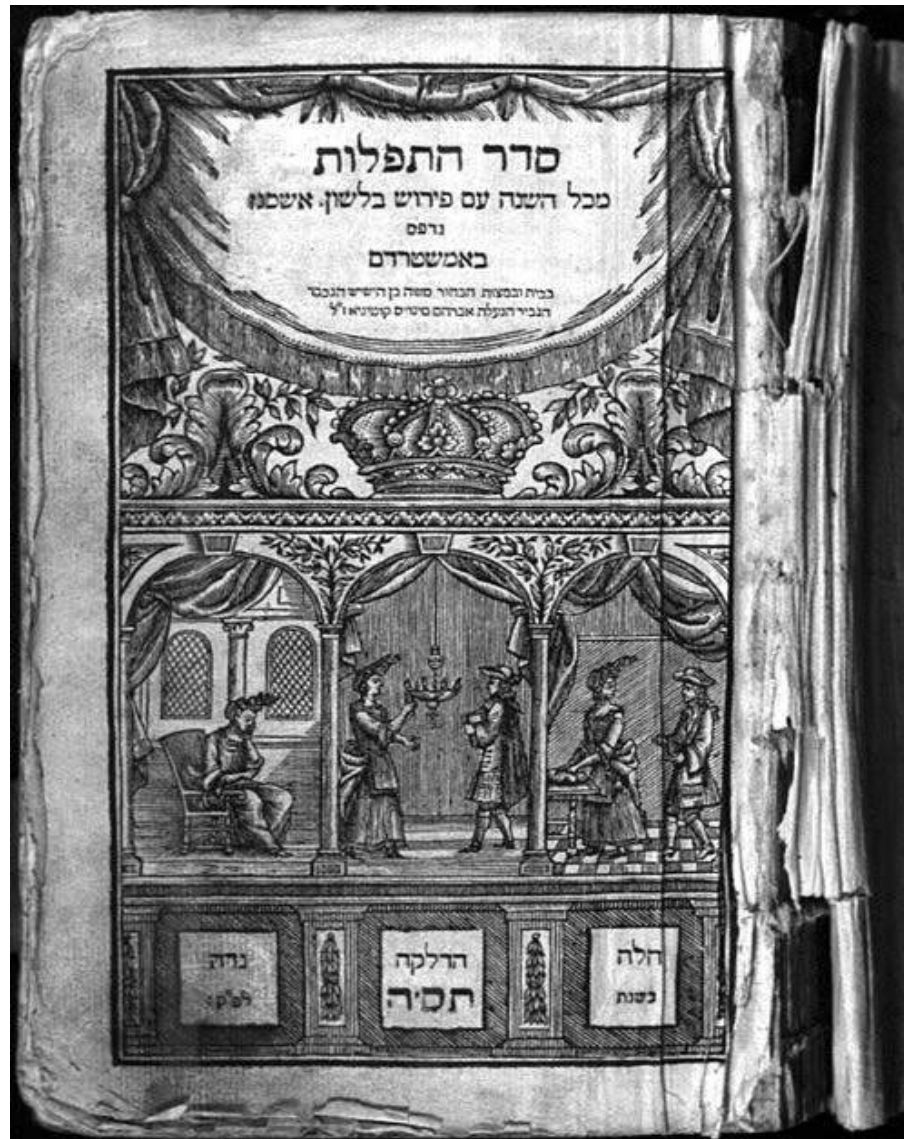 סדר התפלות
מכל השנה עם פירוש בלשון. אשכנז
נדפס
באמשטרדם
בבית ובמצות הבחור משה בן הישיש הנכבד
הגביר הנעלה אברהם מינדיס קוטיניא ז"ל
חלה
הדלקה
נדה
בשנת
תס"ה
לפ"ק: